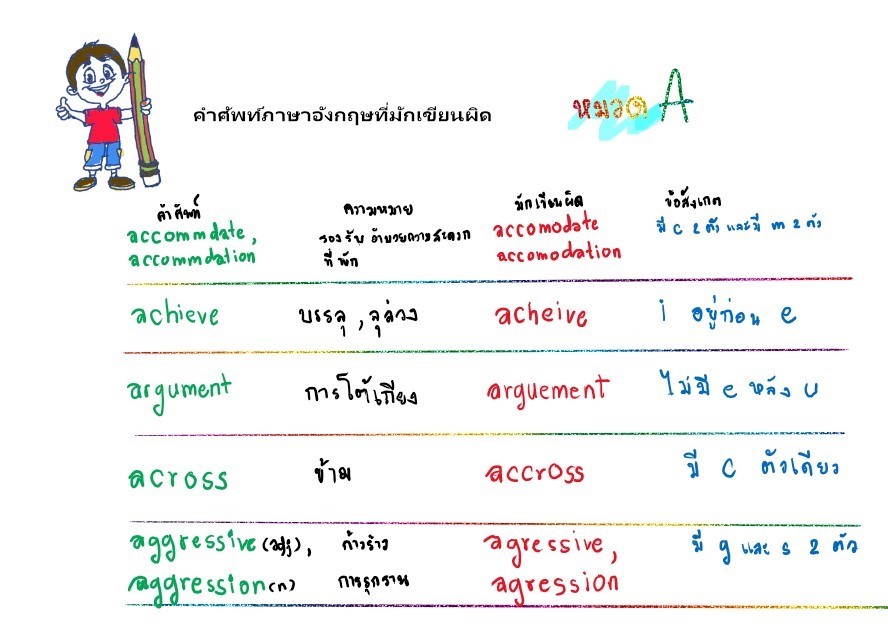 คำศัพท์ภาษาอังกฤษที่มักเขียนผิด
หมวด A
คำศัพท์ ความหมาย มักเขียนผิด ข้อสังเกต
accommdate, รองรับ อำนวยความสะดวก accomodate มี c 2 ตัว และมี m 2 ตัว
accommdation ที่พัก accomodation
achieve บรรลุ , ลุล่วง acheive i อยู่ก่อน e
argument การโต้เถียง arguement ไม่มี e หลัง u
across ข้าม accross มี c ตัวเดียว
aggressive (adj), ก้าวร้าว agressive, มี g และ s 2 ตัว
aggression (n) การรุกราน agression